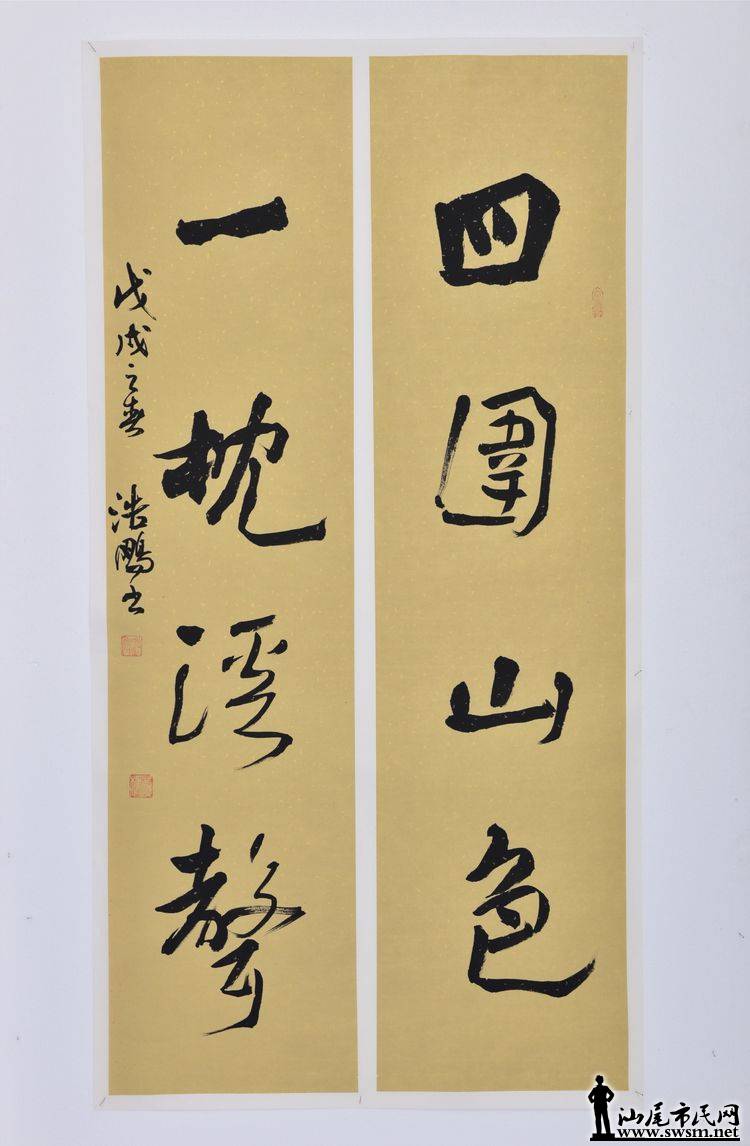 四圍山色
一枕溪聲
戊戌之春 浩鵬書
汕尾市民网
www.swsm.net